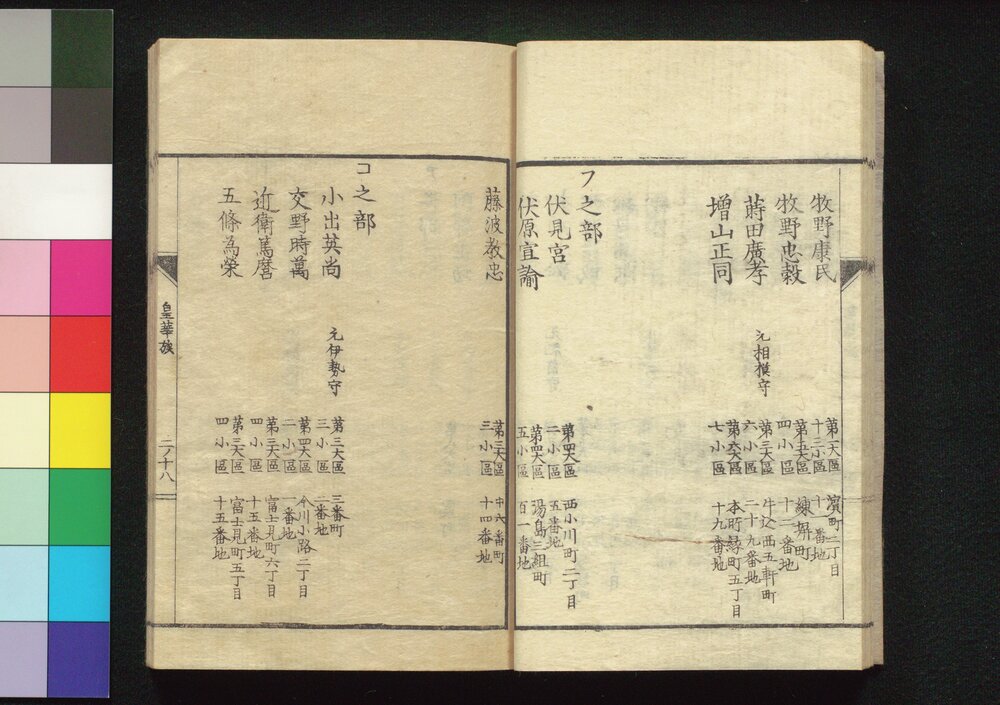 牧野康民
第一大區 濱町二丁目
十三小區 十一番地
牧野忠毅
第五大區 練塀町
四小區 十二番地
蒔田廣孝 元相摸守
第三大區 牛込西五軒町
六小區 二十九番地
増山正同
第六大區 本町緑町五丁目
七小區 十九番地
フ之部
伏見宮
第四大區 西小川町二丁目
二小區 五番地
伏原宣諭
第四大區 湯島三組町
五小區 百一番地
藤波教忠
第三大區 中六番町
三小區 十四番地
コ之部
小出英尚 元伊勢守
第三大區 三番町
三小區 二番地
交野時萬
第四大區 今川小路二丁目
一小區 一番地
近衛篤麿
第三大區 富士見町六丁目
四小區 十五番地
五條為榮
第三大區 富士見町五丁目
四小區 十五番地
皇華族
二ノ十八